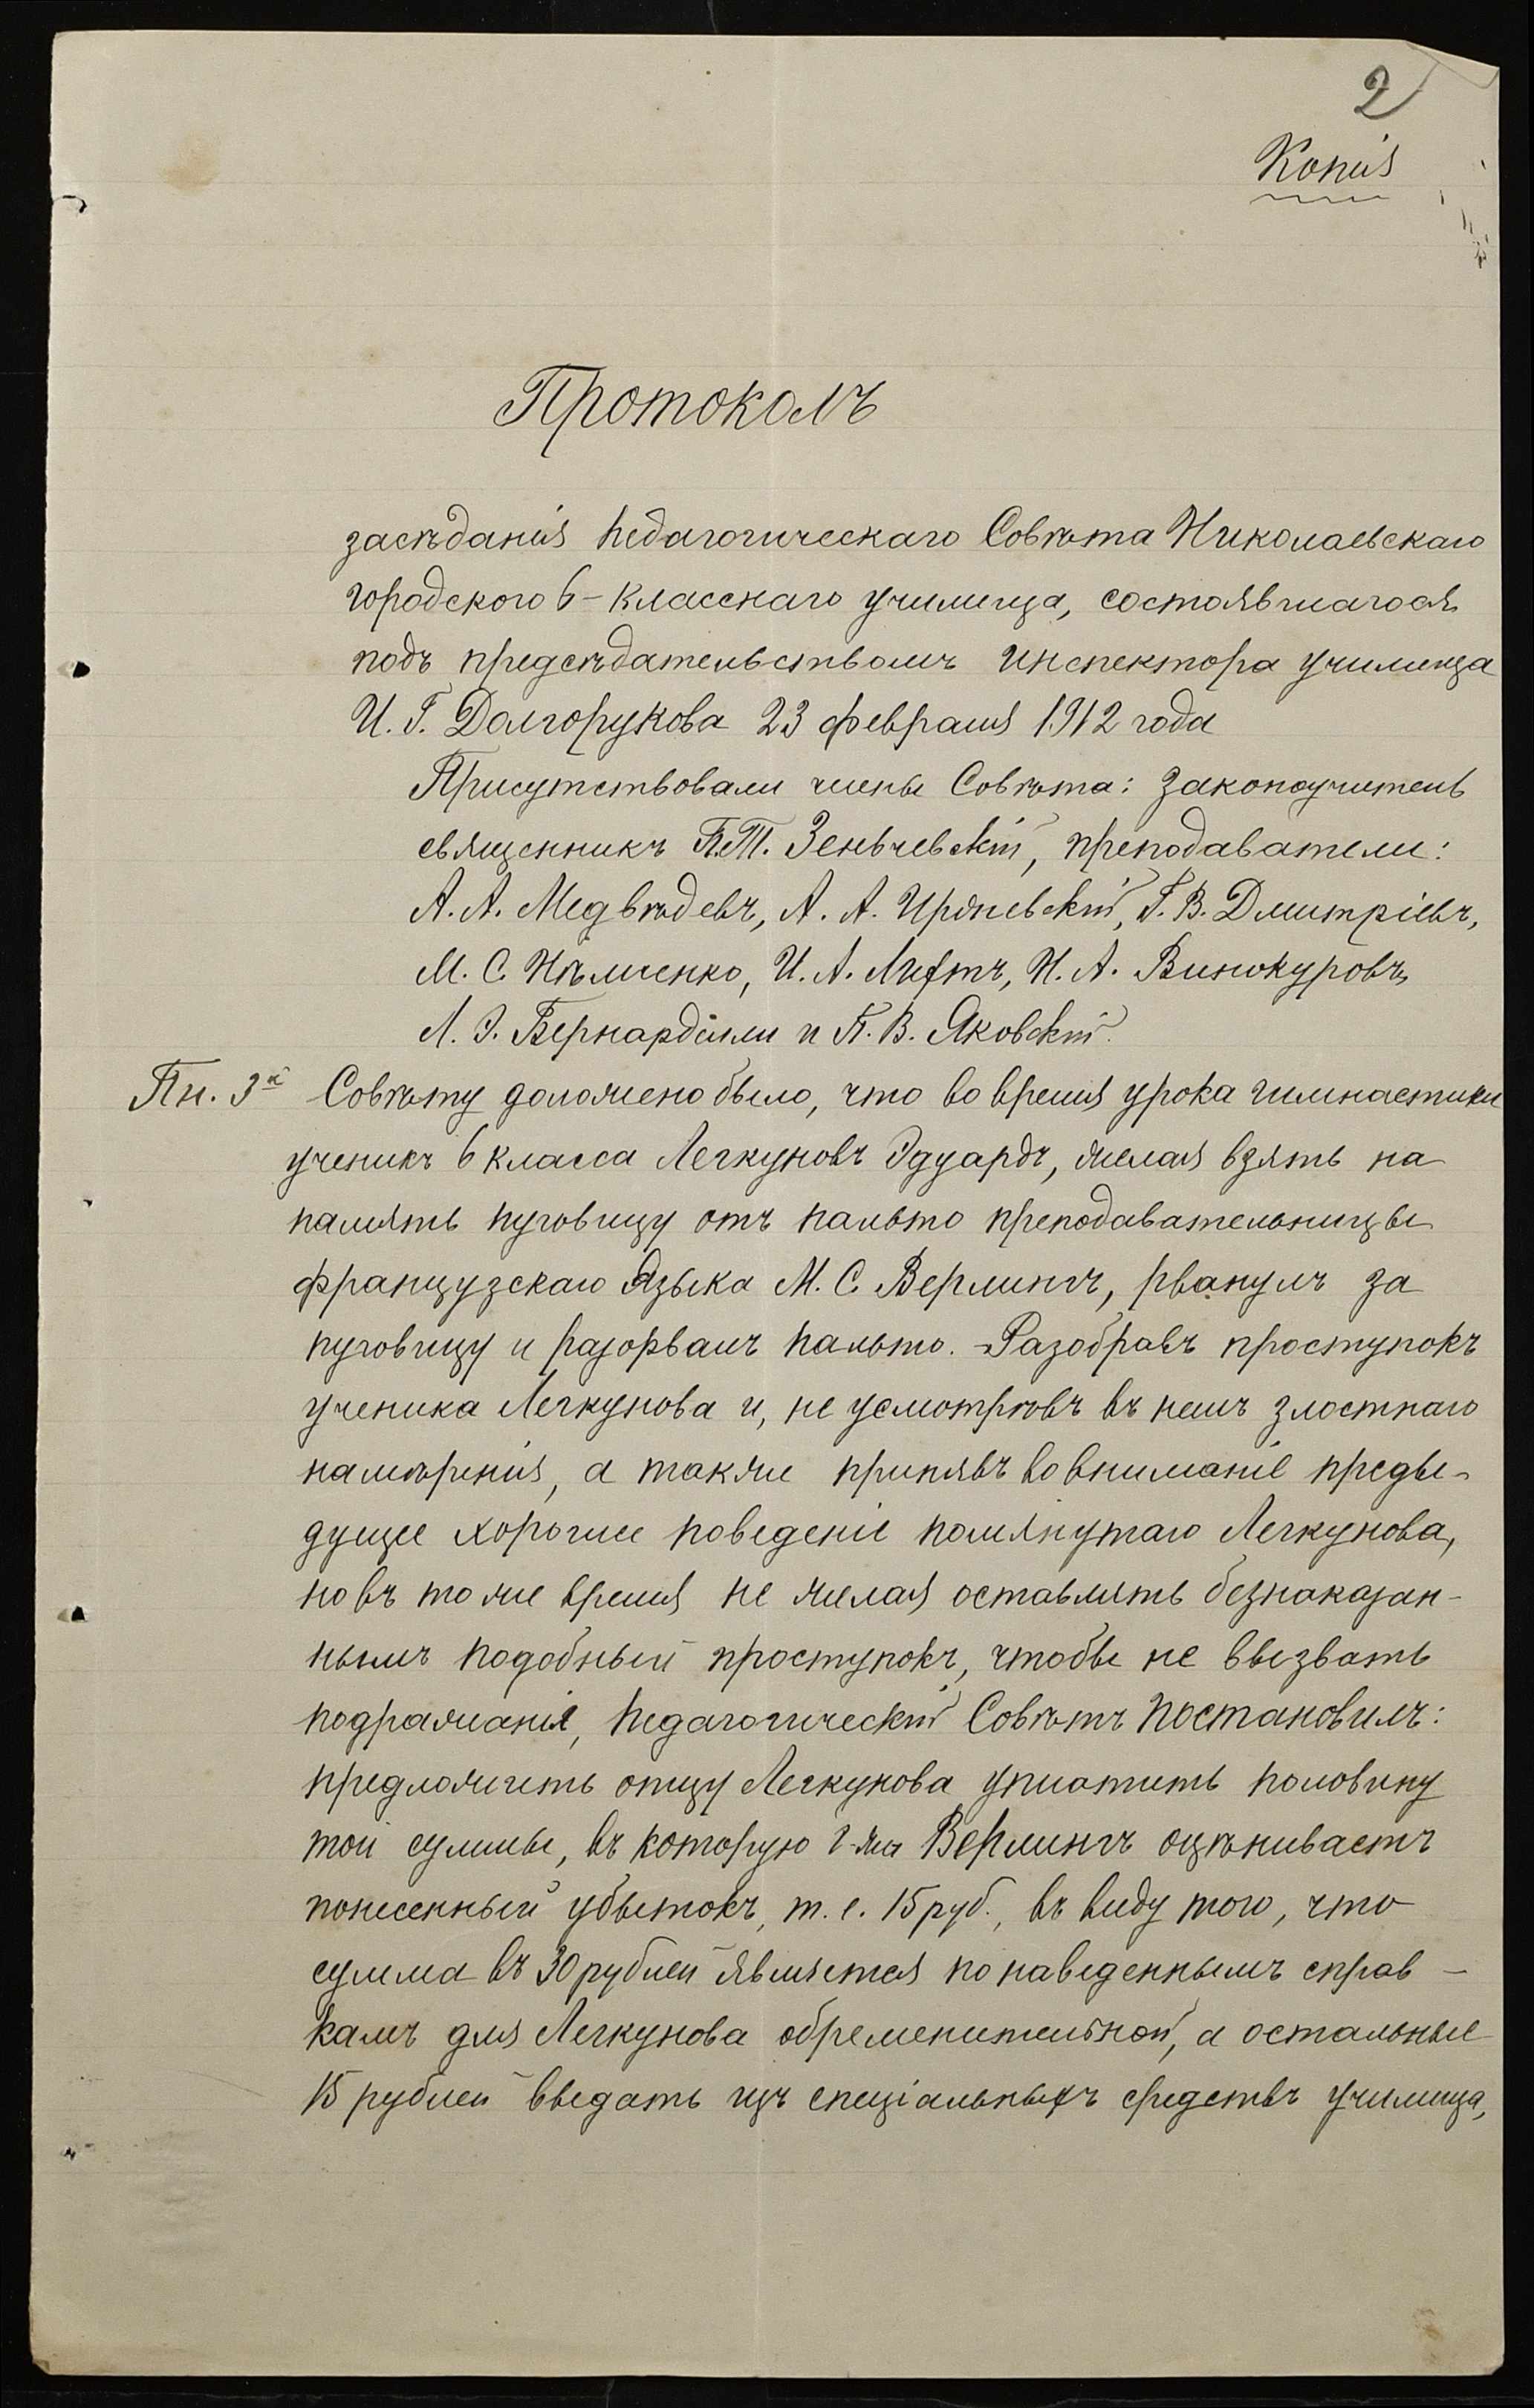 2
Копія
Протоколъ
засѣданія педагогическаго Совѣта Николаевскаго
городского 6-класснаго училища, состоявшагося
подъ предсѣдательствомъ инспектора училища
И. Г. Долгорукова 23 февраля 1912 года
Присутствовали члены Совѣта: законоучитель
священникъ П.Т. Зеньчевскій, преподаватели:
А. А. Медвѣдевъ, А. А. Г. В. Дмитріевъ,
М. С. Нѣмченко, И. А. Лифтъ, Н. А. Винокуровъ,
Л. Э. Бернардацци и П. В. Яковскій.
Пн. 3й Совѣту доложено было, что во время урока гимнастики
ученикъ 6 класса Легкуновъ Эдуардъ, желая взять на
память пуговицу отъ пальто преподавательницы
французскаго языка М. С. Верлингъ, рванулъ за
пуговицу и разорвалъ пальто. - Разобравъ проступокъ
ученика Легкунова и, не усмотрѣвъ въ немъ злостнаго
намѣренія, а также принявъ во вниманіе преды-
дущее хорошее поведеніе помянутаго Легкунова,
но въ то же время не желая оставлять безнаказан-
нымъ подобный проступокъ, чтобы не вызвать
подражанія, педагогическій Совѣтъ постановилъ:
предложить отцу Легкунова уплатить половину
той суммы, въ которую г-жа Верлингъ оцѣниваетъ
понесенный убытокъ, т. е. 15 руб., въ виду того, что
сумма въ 30 рублей является по наведеннымъ справ-
камъ для Легкунова обременительной, а остальные
15 рублей выдать изъ спеціальныхъ средствъ училища,